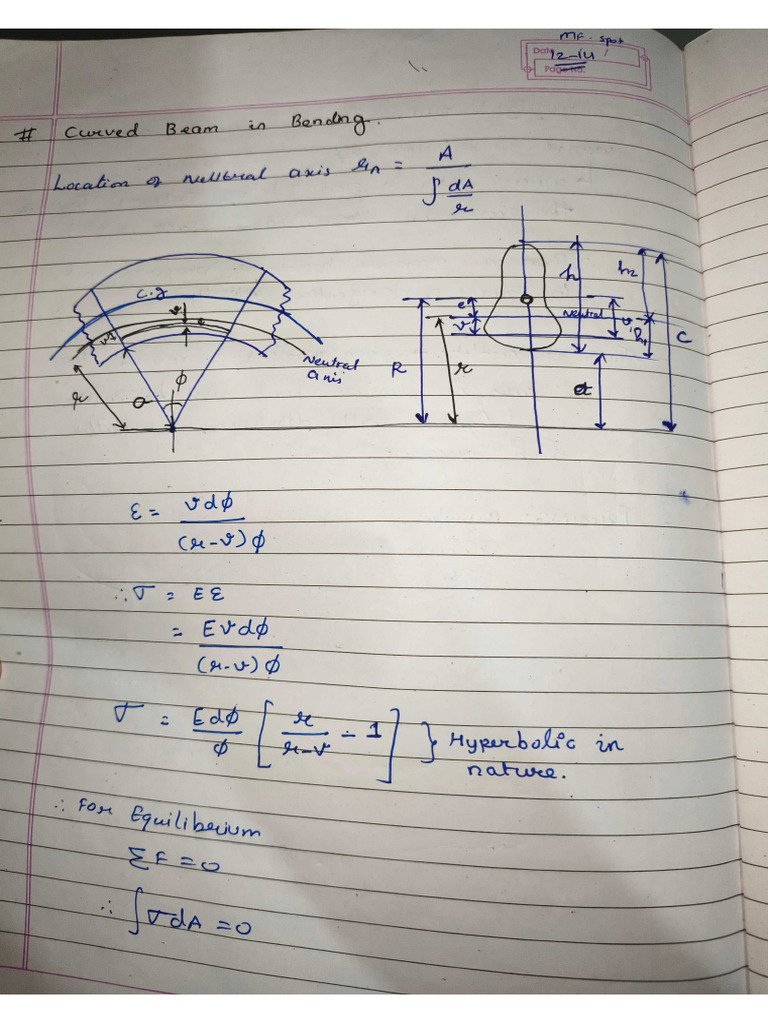 MF. spot
Date 12-14
Page No.
# Curved Beam in Bendng.
Location of Nutbral axis rn = A / ∫ dA/r
c.g
e
Neutral axis
r
θ
φ
h
h2
e
Neutral
v
v
C
R
r
ε = vdφ / (r-v)φ
∴ σ = Eε
= Evdφ / (r-v)φ
σ = Edφ/φ [ r/(r-v) - 1 ] } Hyperbolic in
nature.
∴ For Equiliberium
ΣF=0
∴ ∫σdA=0